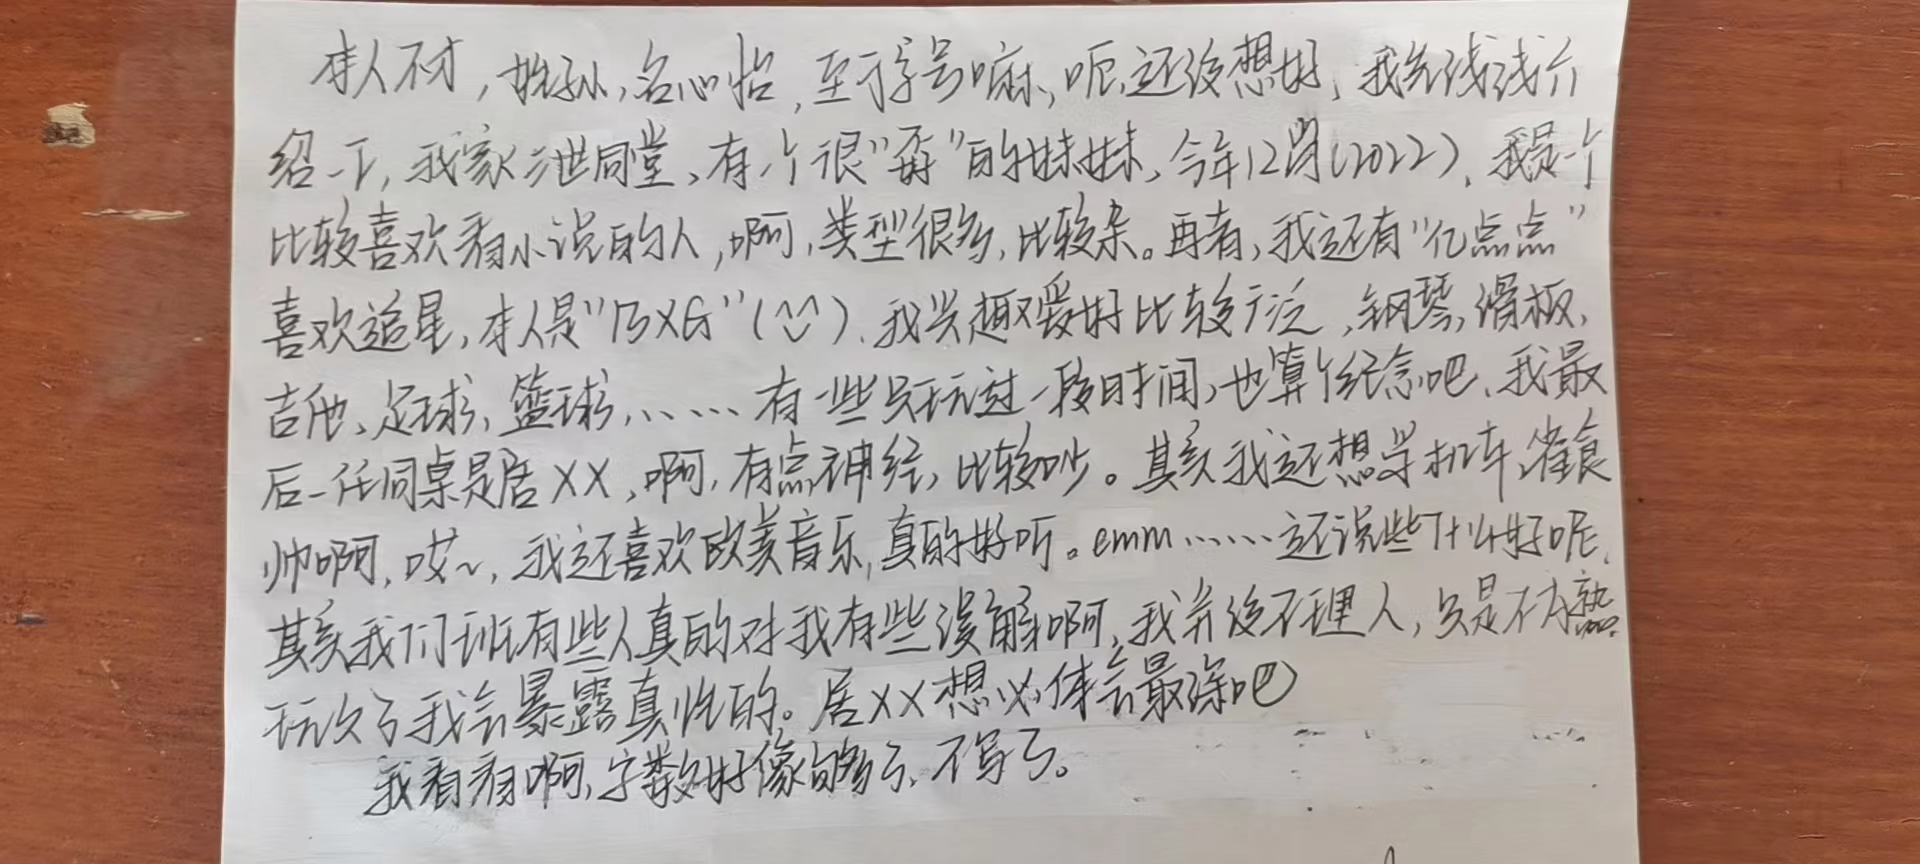 本人不才,姓孙,名心怡,至于字号嘛,呃,还没想好,我先浅浅介
绍一下,我家三世同堂,有个很“孬”的妹妹,今年12岁(2022),我是个
比较喜欢看小说的人,啊,类型很多,比较杂。再者,我还有“亿点点”
喜欢追星,本人是“BXG”(^^),我兴趣爱好比较广泛,钢琴,滑板,
吉他、足球、篮球、……有一些只玩过一段时间,也算个纪念吧,我最
后一任同桌是居XX,啊,有点神经,比较吵。其实我还想学机车,
帅啊,哎~,我还喜欢欧美音乐,真的好听。emm……还说些什么好呢,
其实我们班有些人真的对我有些误解啊,我并没不理人,只是不太熟
玩欠了我会暴露真性的。居XX想必体会最深吧
我看看啊,字数好像够了,不写了。